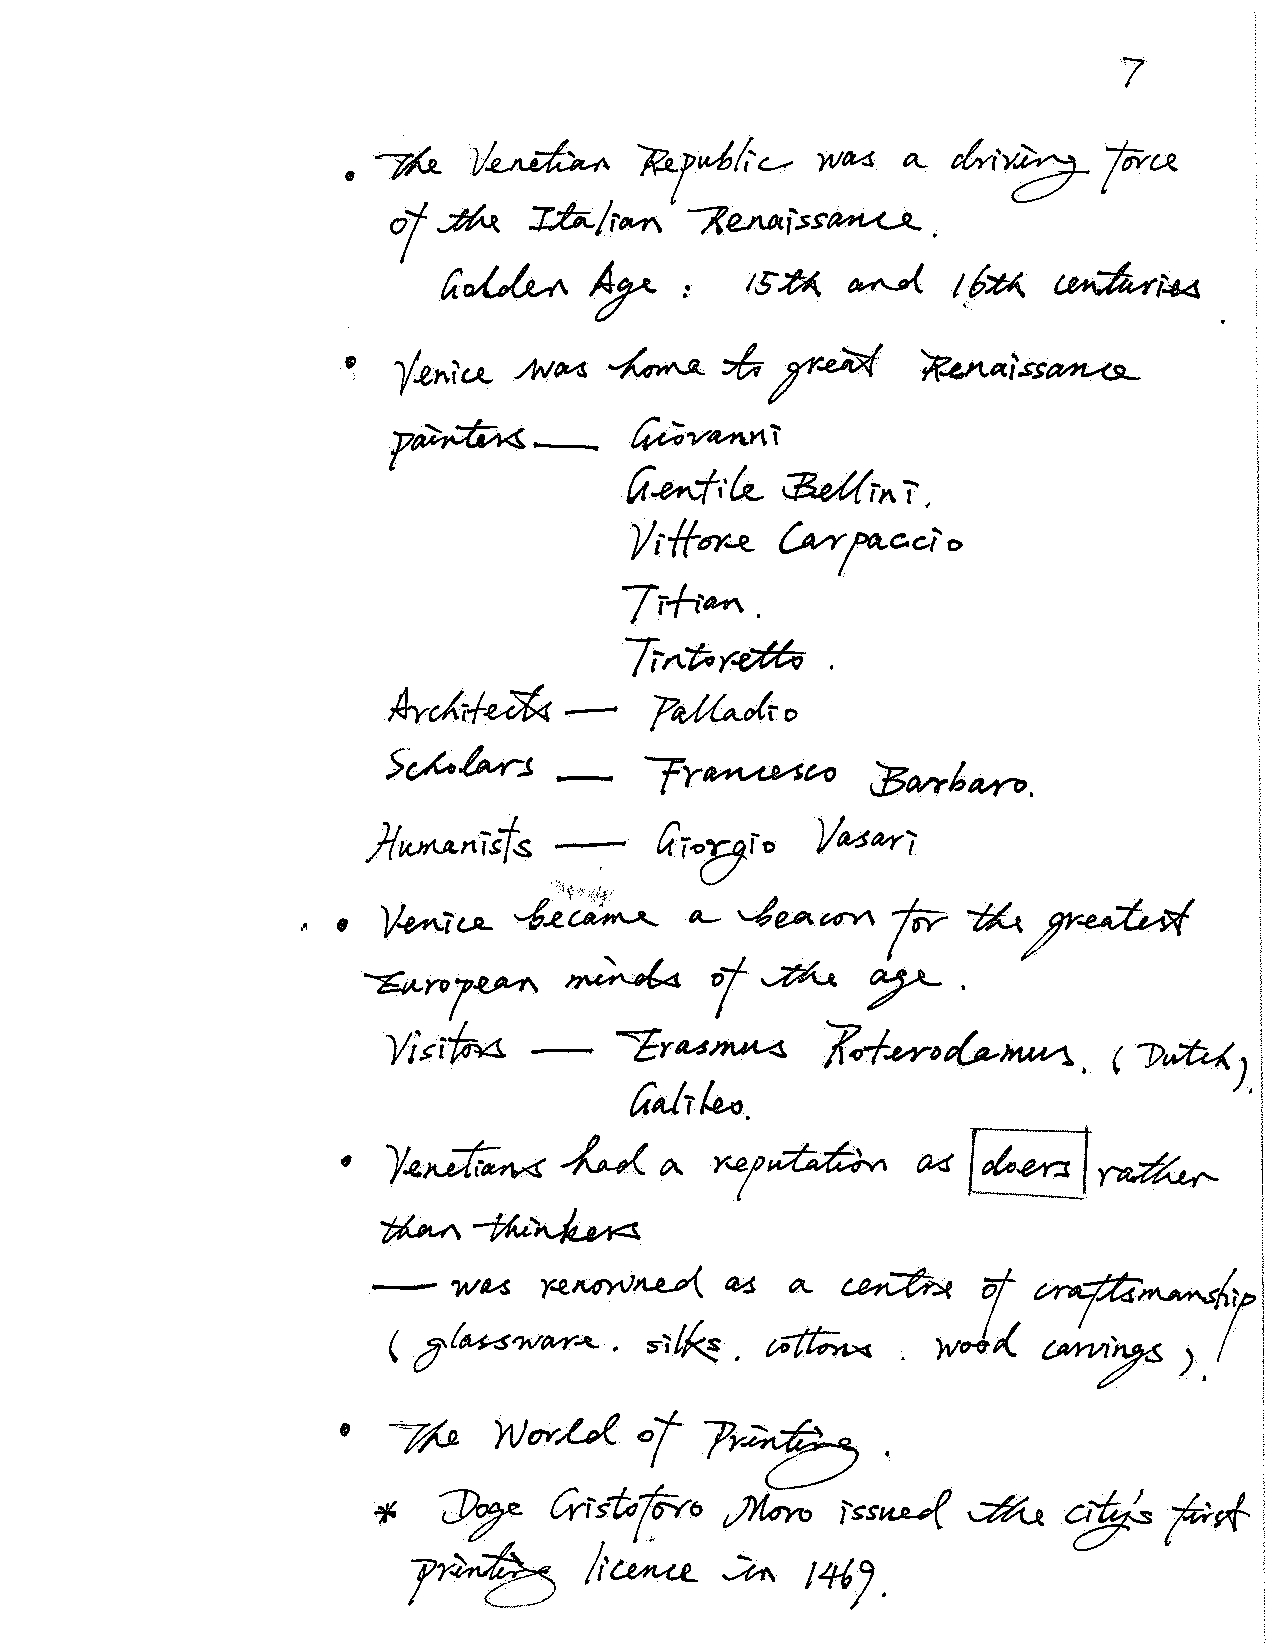 7
• The Venetian Republic was a driving force
of the Italian Renaissance.
Golden Age : 15th and 16th centuries.
• Venice was home to great Renaissance
painters — Giovanni
Gentile Bellini,
Vittore Carpaccio
Titian.
Tintoretto.
Architects — Palladio
Scholars — Francesco Barbaro.
Humanists — Giorgio Vasari
• Venice became a beacon for the greatest
European minds of the age.
Visitors — Erasmus Roterodamus. (Dutch).
Galileo.
• Venetians had a reputation as doers rather
than thinkers
— was renowned as a centre of craftsmanship
(glassware. silks. cottons. wood carvings).!
• The World of Printing.
* Doge Cristoforo Moro issued the city's first
printing licence in 1469.